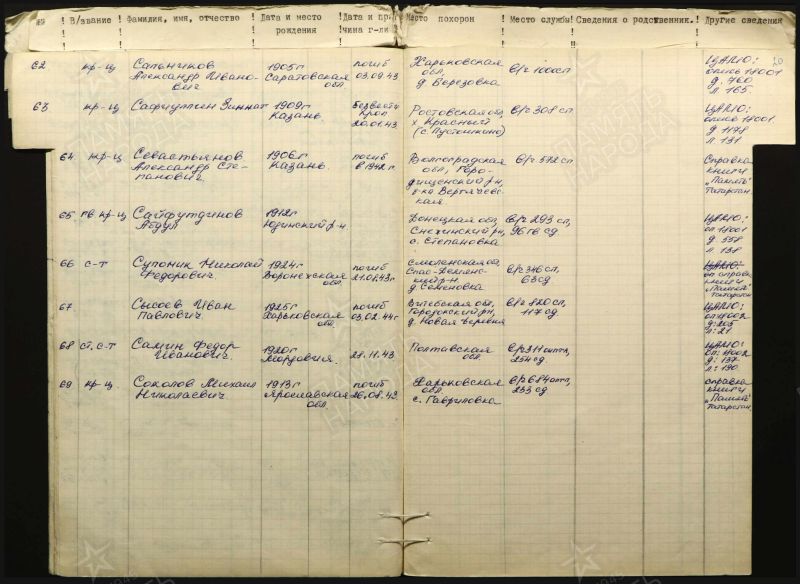 № В/звание Фамилия, имя, отчество Дата и место рождения Дата и при чина г-ли Место похорон Место службы Сведения о родственник. Другие сведения
20
62 кр-ц Сальников Александр Иванович 1905г Саратовская обл погиб 03.09.43 Харьковская обл, д Березовка в/ч 100сп ЦАМО: опись 18001 д. 460 л. 165
63 кр-ц Сафиуллин Зиннат 1909г Казань Безвести 20.01.43 Ростовская обл, х Красный (с. Пустошкино) в/ч 308 сп ЦАМО: опись 18001. д 1178 л. 131
64 кр-ц Севастьянов Александр Степанович 1906г Казань. погиб в 1942г Волгоградская обл, Городищенский рн, в/ч 572 сп Справка книги „Память" Татарстан
65 гв кр-ц Сайфутдинов Абдул 1912г Юдинский р-н Донецкая обл, Снежинский рн, с. Степановка в/ч 293 сп, 96 гв сд ЦАМО: оп 18001 д 558 л. 138
66 с-т Супоник Николай Федорович 1924г Воронежская обл погиб 21.08.43г Смоленская обл, Спас-Деменский р-н. д Семеновка в/ч 346 сп, 63 сд ЦАМО: оп справка книги „Память" Татарстан
67 Сысоев Иван Павлович 1925г Харьковская обл погиб 03.02.44г Витебская обл, Городокский рн, д. Новая Деревня в/ч 820 сп, 117 сд ЦАМО: оп 11002 д: 205 л: 21
68 ст. с-т Самин Федор Иванович 1920г Мордовия 28.11.43 Полтавская обл в/ч 311 254 сд ЦАМО: оп: 11002 д: 137 л: 190
69 кр-ц Соколов Михаил Николаевич 1913г Ярославская обл погиб 26.08.42. Харьковская обл с. Гавриловка в/ч 614 253 сд справка книги „Память" Татарстан